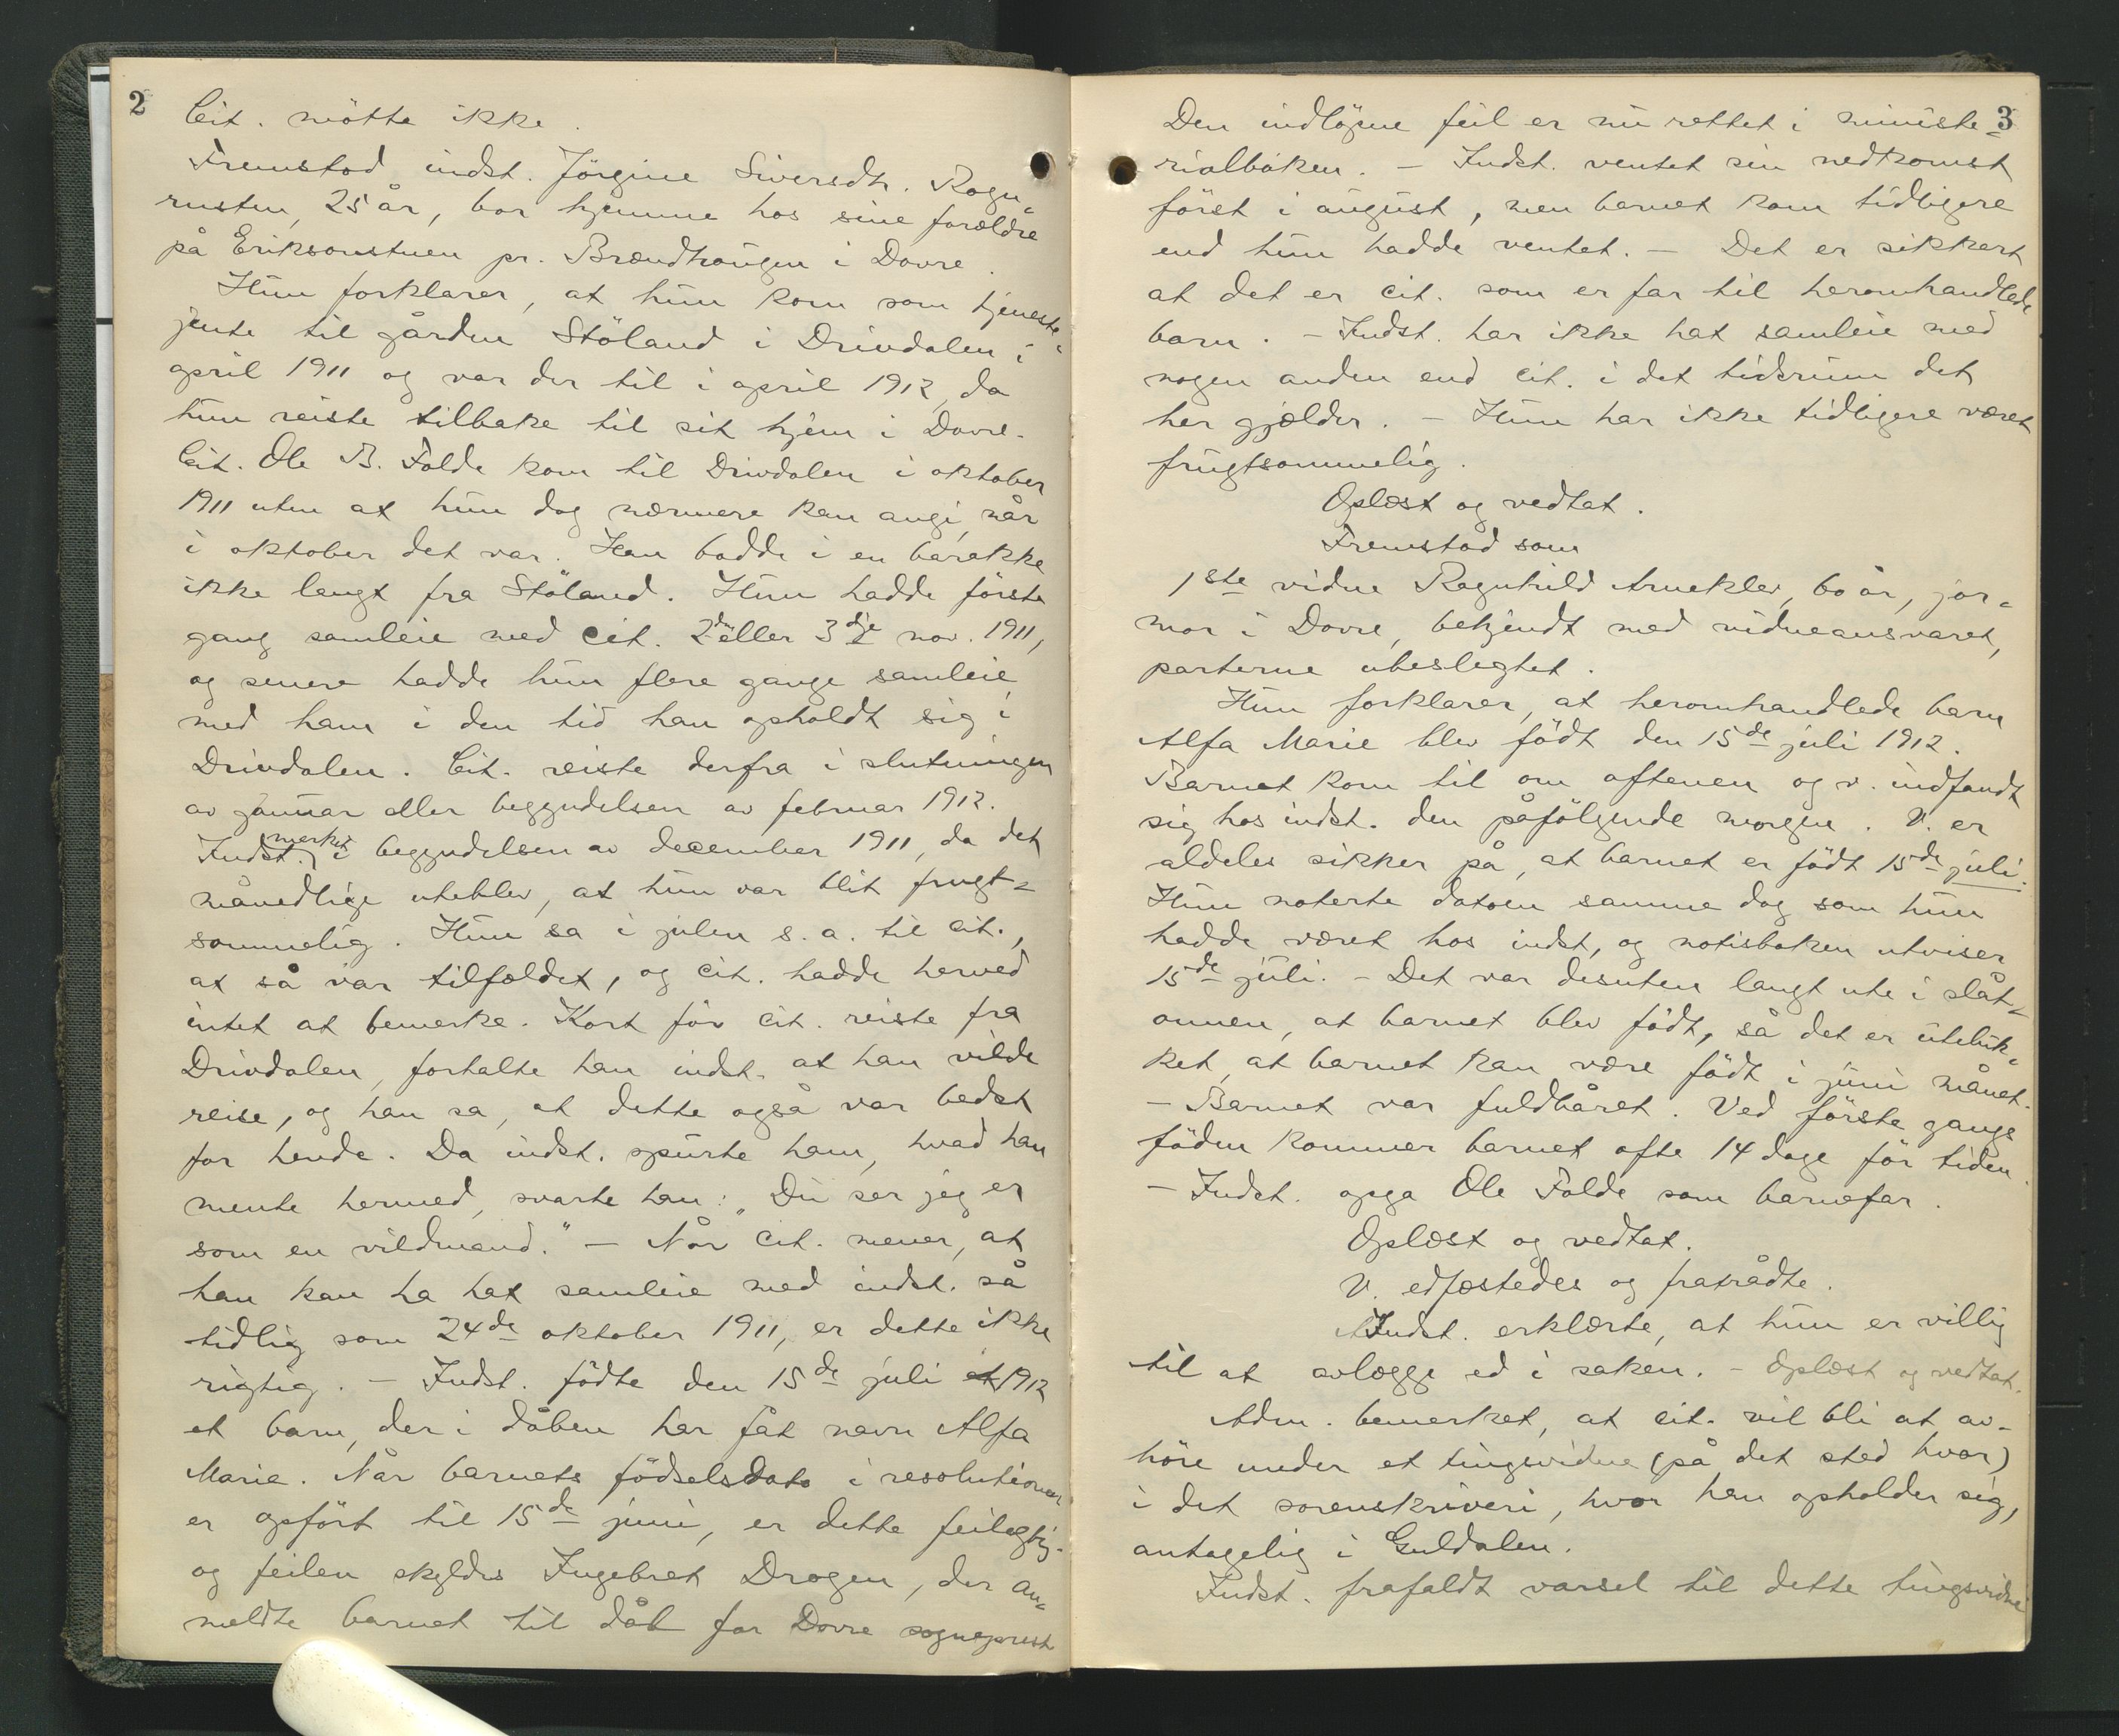 2
Cit. møtte ikke.
Fremstod indst. Jörgine Siversdtr. Rogn-
rusten, 25 år, bor hjemme hos sine forældre
på Eriksonstuen pr. Brændhaugen i Dovre.
Hun forklarer, at hun kom som tjeneste-
jente til gården Stöland i Drivdalen i
april 1911 og var der til i april 1912, da
hun reiste tilbake til sit hjem i Dovre.
Cit. Ole B. Folde kom til Drivdalen i oktober
1911 uten at hun dog nærmere kan angi, når
i oktober det var. Han bodde i en barakke
ikke langt fra Stöland. Hun hadde förste
gang samleie med cit. 2den eller 3dje nov. 1911,
og senere hadde hun flere gange samleie
med ham i den tid han opholdt sig i
Drivdalen. Cit. reiste derfra i slutningen
av januar eller begyndelsen av februar 1912.
Indst. merket i begyndelsen av december 1911, da det
månedlige uteblev, at hun var blit frugt-
sommelig. Hun sa i julen s.a. til cit.,
at så var tilfældet, og cit. hadde herved
intet at bemerke. Kort för cit. reiste fra
Drivdalen, fortalte han indst. at han vilde
reise, og han sa, at dette også var bedst
for hende. Da indst. spurte ham, hvad han
mente hermed, svarte han: "Du ser jeg er
som en vildmand." – Når cit. mener, at
han kan ha hat samleie med indst. så
tidlig som 24de oktober 1911, er dette ikke
rigtig. – Indst. födte den 15de juli et 1912
et barn, der i dåben har fåt navn Alfa
Marie. Når barnets födselsdato i resolutionen
er opfört til 15de juni, er dette feilagtig.
og feilen skyldes Ingebret Dragen, der an-
meldte barnet til dåb for Dovre sogneprest
3
Den indlöpne feil er nu rettet i ministe-
rialboken. – Indst. ventet sin nedkomst
först i august, men barnet kom tidligere
end hun hadde ventet. – Det er sikkert
at det er cit. som er far til heromhandlede
barn. – Indst. har ikke hat samleie med
nogen anden end cit. i det tidsrum det
her gjælder. – Hun har ikke tidligere været
frugtsommelig.
Oplæst og vedtat.
Fremstod som
1ste vidne Ragnhild Arneklev, 60 år, jor-
mor i Dovre, bekjendt med vidneansvaret,
parterne ubeslegtet.
Hun forklarer, at heromhandlede barn
Alfa Marie blev födt den 15de juli 1912.
Barnet kom til om aftenen og v. indfandt
sig hos indst. den påfölgende morgen. V. er
aldeles sikker på, at barnet er födt 15de juli.
Hun noterte datoen samme dag som hun
hadde været hos indst, og notisboken utviser
15de juli. – Det var desuten langt ute i slåt-
onnen, at barnet blev födt, så det er uteluk-
ket, at barnet kan være födt i juni månet.
– Barnet var fuldbåret. Ved förste gangs
föden kommer barnet ofte 14 dage för tiden.
– Indst. opga Ole Folde som barnefar.
Oplæst og vedtat.
V. edfæstedes og fratrådte.
Indst. erklærte, at hun er villig
til at avlægge ed i saken. – Oplæst og vedtat.
Adm. bemerket, at cit. vil bli at av-
höre under et tingsvidne (på det sted hvor)
i det sorenskriveri, hvor han opholder sig,
antagelig i Guldalen.
Indst. frafaldt varsel til dette tingsvidne